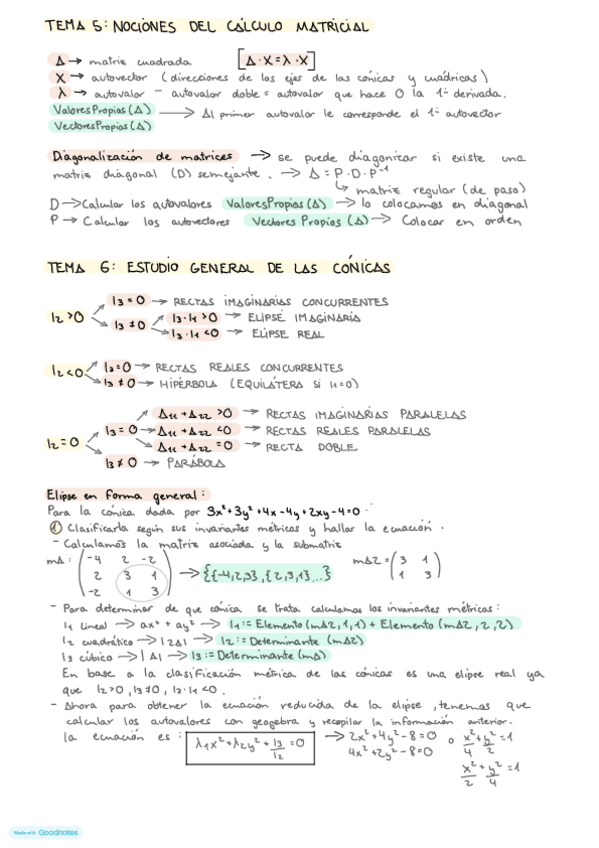 TEMA 5: NOCIONES DEL CÁLCULO MATRICIAL
A → matriz cuadrada [A·X=λ·X]
X → autovector (direcciones de los ejes de las cónicas y cuádricas)
λ → autovalor - autovalor doble = autovalor que hace 0 la 1ª derivada.
ValoresPropios(A)
VectoresPropios(A) → Al primer autovalor le corresponde el 1º autovector
Diagonalización de matrices → se puede diagonizar si existe una
matriz diagonal (D) semejante. → A = P·D·P⁻¹
↳ matriz regular (de paso)
D → Calcular los autovalores ValoresPropios(A) → lo colocamos en diagonal
P → Calcular los autovectores Vectores Propios(A) → Colocar en orden
TEMA 6: ESTUDIO GENERAL DE LAS CÓNICAS
I2>0
I3=0 → RECTAS IMAGINARIAS CONCURRENTES
I3≠0
I3·I1>0 → ELIPSE IMAGINARIA
I3·I1<0 → ELIPSE REAL
I2<0
I3=0 → RECTAS REALES CONCURRENTES
I3≠0 → HIPÉRBOLA (EQUILÁTERA SI I1=0)
I2=0
I3=0
A11+A22>0 → RECTAS IMAGINARIAS PARALELAS
A11+A22<0 → RECTAS REALES PARALELAS
A11+A22=0 → RECTA DOBLE
I3≠0 → PARÁBOLA
Elipse en forma general:
Para la cónica dada por 3x²+3y²+4x-4y+2xy-4=0.
① Clasificarla según sus invariantes métricos y hallar la ecuación.
- Calculamos la matriz asociada y la submatriz
mA: (-4 2 -2
2 3 1
-2 1 3) → {{-4,2,3},{2,3,1}...} mA2 = (3 1
1 3)
- Para determinar de que cónica se trata calculamos los invariantes métricos:
I1 lineal → ax²+ay² → I1:= Elemento(mA2,1,1) + Elemento(mA2,2,2)
I2 cuadrático → |2A| → I2:= Determinante(mA2)
I3 cúbico → |A| → I3:= Determinante(mA)
En base a la clasificación métrica de las cónicas es una elipse real ya
que I2>0, I3≠0, I2·I1<0.
- Ahora para obtener la ecuación reducida de la elipse, tenemos que
calcular los autovalores con geogebra y recopilar la información anterior.
la ecuación es: λ1x²+λ2y²+I3/I2=0 → 2x²+4y²-8=0 o x²/4+y²/2=1
4x²+2y²-8=0 x²/2+y²/4=1
Made with Goodnotes